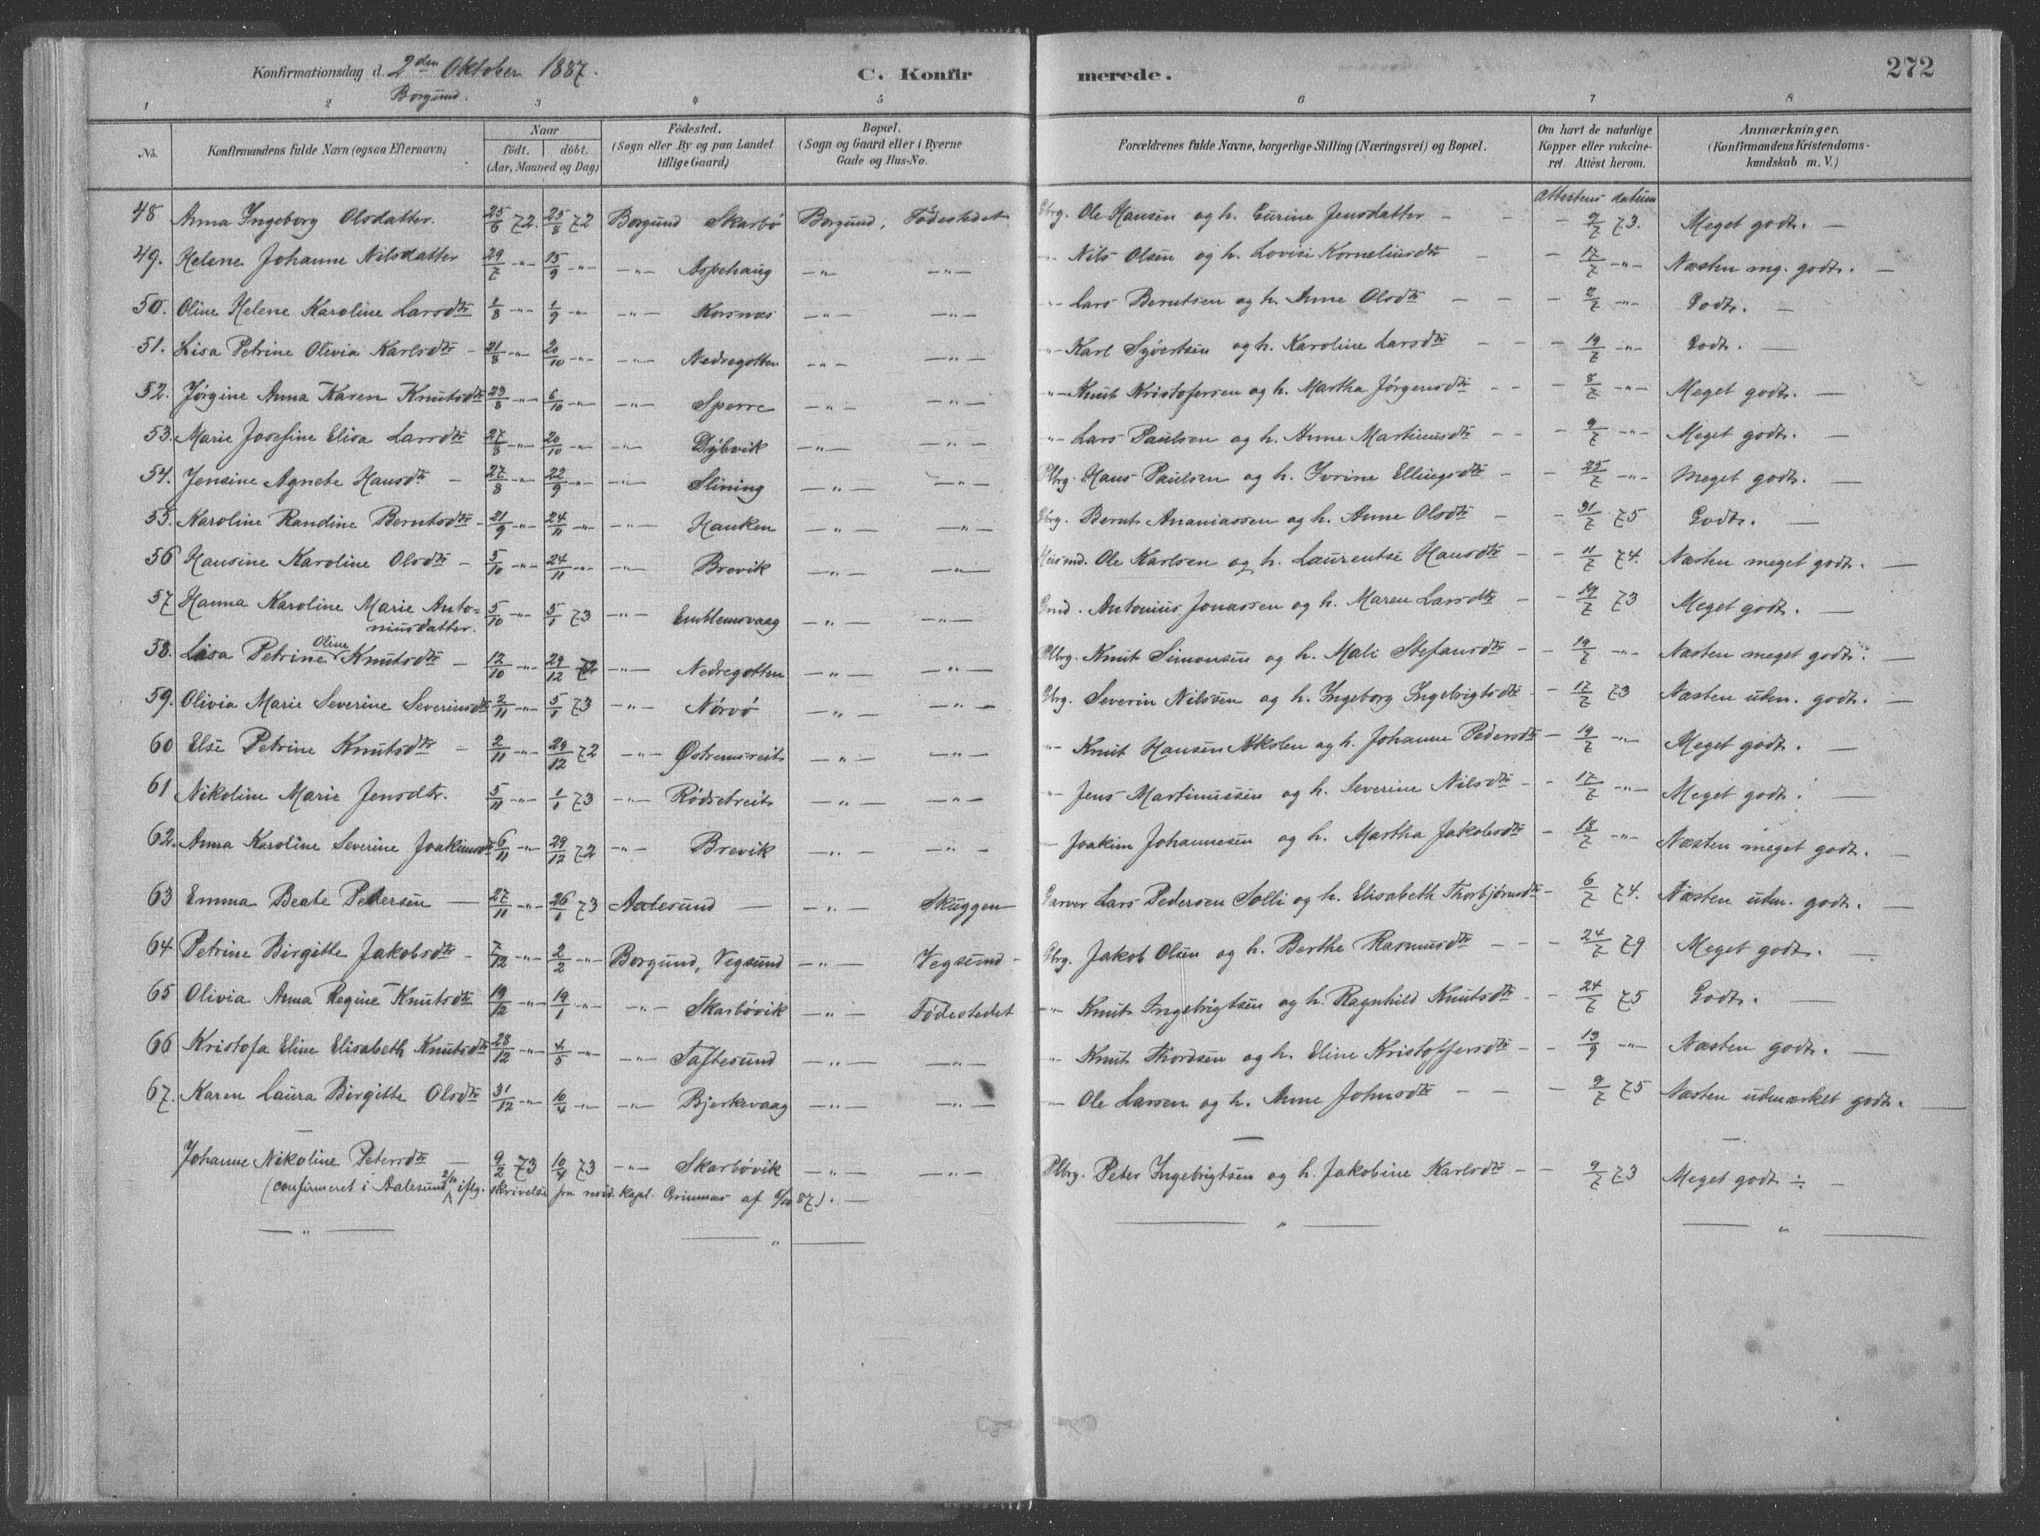 Konfirmationsdag d. 2den Oktober 1887. C. Konfirmerede. 272
Borgund.
1 2 3 4 5 6 7 8
No. Konfirmandens fulde Navn (ogsaa Efternavn) Naar født. døbt. (Aar, Maaned og Dag) Fødested. (Sogn eller By og paa Landet tillige Gaard) Bopæl. (Sogn og Gaard eller i Byerne Gade og Hus-No. Forældrenes fulde Navne, borgerlige Stilling (Næringsvei) og Bopæl. Om havt de naturlige Kopper eller vaccineret. Attest herom. Anmærkninger. (Konfirmandens Kristendomskundskab m. V.)
Attestens datum
48 Anna Ingeborg Olsdatter. 25/8 72. 25/8 72 Borgund Skarbø Borgund, Fødestedet Gbrg. Ole Hansen og h. Gurine Jensdatter - - - 9/7 73. Meget godt. -
49. Helene Johanne Nilsdatter 29/7 -"- 15/9 -"- -"- Aspehaug -"- -"- -"- Nils Olsen og h. Lovise Korneliusdtr - - 17/7 -"- Næsten mg. godt. -
50. Oline Helene Karoline Larsdtr 1/8 -"- 1/9 -"- -"- Korsnæs -"- -"- -"- Lars Berntsen og h. Anne Olsdtr - - - 2/7 -"- Godt. -
51. Lisa Petrine Olivia Karlsdtr 21/8 -"- 20/10 -"- -"- Nedregotten -"- -"- -"- Karl Syvertsen og h. Karoline Larsdtr - - - 19/7 -"- Godt. -
52. Jørgine Anna Karen Knutsdtr 23/8 -"- 6/10 -"- -"- Sperre -"- -"- -"- Knut Kristofersen og h. Martha Jørgensdtr - - - 8/7 -"- Meget godt. -
53. Marie Josefine Elisa Larsdtr 27/8 -"- 20/10 -"- -"- Dybvik -"- -"- -"- Lars Paulsen og h. Anne Martinusdtr - - - 9/7 -"- Meget godt. -
54. Jensine Agnete Hansdtr - 27/8 -"- 22/9 -"- -"- Slining -"- -"- Plbrg. Hans Paulsen og h. Ivrine Ellingsdtr - - 25/7 -"- Meget godt. -
55. Karoline Randine Berntsdtr - 21/9 -"- 24/11 -"- -"- Hauken -"- -"- Gbrg. Bernt Ananiassen og h. Anne Olsdtr - - 31/7 75 Godt. -
56 Hansine Karoline Olsdtr - 5/10 -"- 24/11 -"- -"- Brevik -"- -"- Husmd. Ole Karlsen og h. Laurentse Hansdtr - - 11/7 74. Næsten meget godt. -
57 Hanna Karoline Marie Antoniusdatter. 5/10 -"- 5/1 73 -"- Emblemsvaag -"- -"- Gmd. Antonius Jonassen og h. Maren Larsdtr - - 19/7 73 Meget godt. -
58. Lisa Petrine Oline Knutsdtr - 12/10 -"- 29/12 72 -"- Nedregotten -"- -"- Plbrg. Knut Simonsen og h. Mali Stefansdtr - - 19/7 -"- Næsten meget godt. -
59. Olivia Marie Severine Severinsdtr 2/11 -"- 5/1 73 -"- Nørvø -"- -"- Gbrg. Severin Nilsen og h. Ingeborg Ingebrigtsdtr - - 17/7 73 Næsten udm. godt. -
60 Else Petrine Knutsdtr - 2/11 -"- 29/12 72 -"- Østremsreit -"- -"- -"- Knut Hansen Akslen og h. Johanne Pedersdtr - 19/7 -"- Meget godt. -
61 Nikoline Marie Jensdtr. 5/11 -"- 1/1 73 -"- Rødsetreit -"- -"- -"- Jens Martinussen og h. Severine Nilsdtr - - 17/7 -"- Meget godt. -
62. Anna Karoline Severine Joakimsdtr 6/11 -"- 29/12 72 -"- Brevik -"- -"- -"- Joakim Johannesen og h. Martha Jakobsdtr - 18/7 -"- Næsten meget godt. -
63 Emma Beate Petersen - 27/11 -"- 26/1 73 Aalesund - -"- Skuggen Garver Lars Pedersen Solli og h. Elisabeth Thorbjørnsdtr - 6/7 74. Næsten udm. godt. -
64 Petrine Birgitte Jakobsdtr - 7/12 -"- 2/2 -"- Borgund, Vegsund -"- Vegsund - Gbrg. Jakob Olsen og h. Berthe Rasmusdtr - - - 24/7 79 Meget godt. -
65 Olivia Anna Regine Knutsdtr 19/12 -"- 19/1 -"- -"- Skarbøvik -"- Fødestedet -"- Knut Ingebrigtsen og h. Ragnhild Knutsdtr - - 24/7 75 Godt. -
66 Kristofa Eline Elisabeth Knutsdtr 28/12 -"- 4/5 -"- -"- Taftesund -"- -"- -"- Knut Thordsen og h. Eline Kristoffersdtr - - 13/9 -"- Næsten godt. -
67. Karen Laura Birgitte Olsdtr 31/12 -"- 10/4 -"- -"- Bjerkevaag -"- -"- - Ole Larsen og h. Anne Johnsdtr - - - 9/7 75 Næsten udmærket godt. -
Johanne Nikoline Petersdtr - 9/2 73 10/4 73 -"- Skarbøvik -"- -"- Plbrg. Peter Ingebrigtsen og h. Jakobine Karlsdtr - - 9/7 73 Meget godt ÷ -
(confirmeret i Aalesund 2/10 iflg. skrivelse fra resid. kapl. Grimnæs af 6/10 87). -